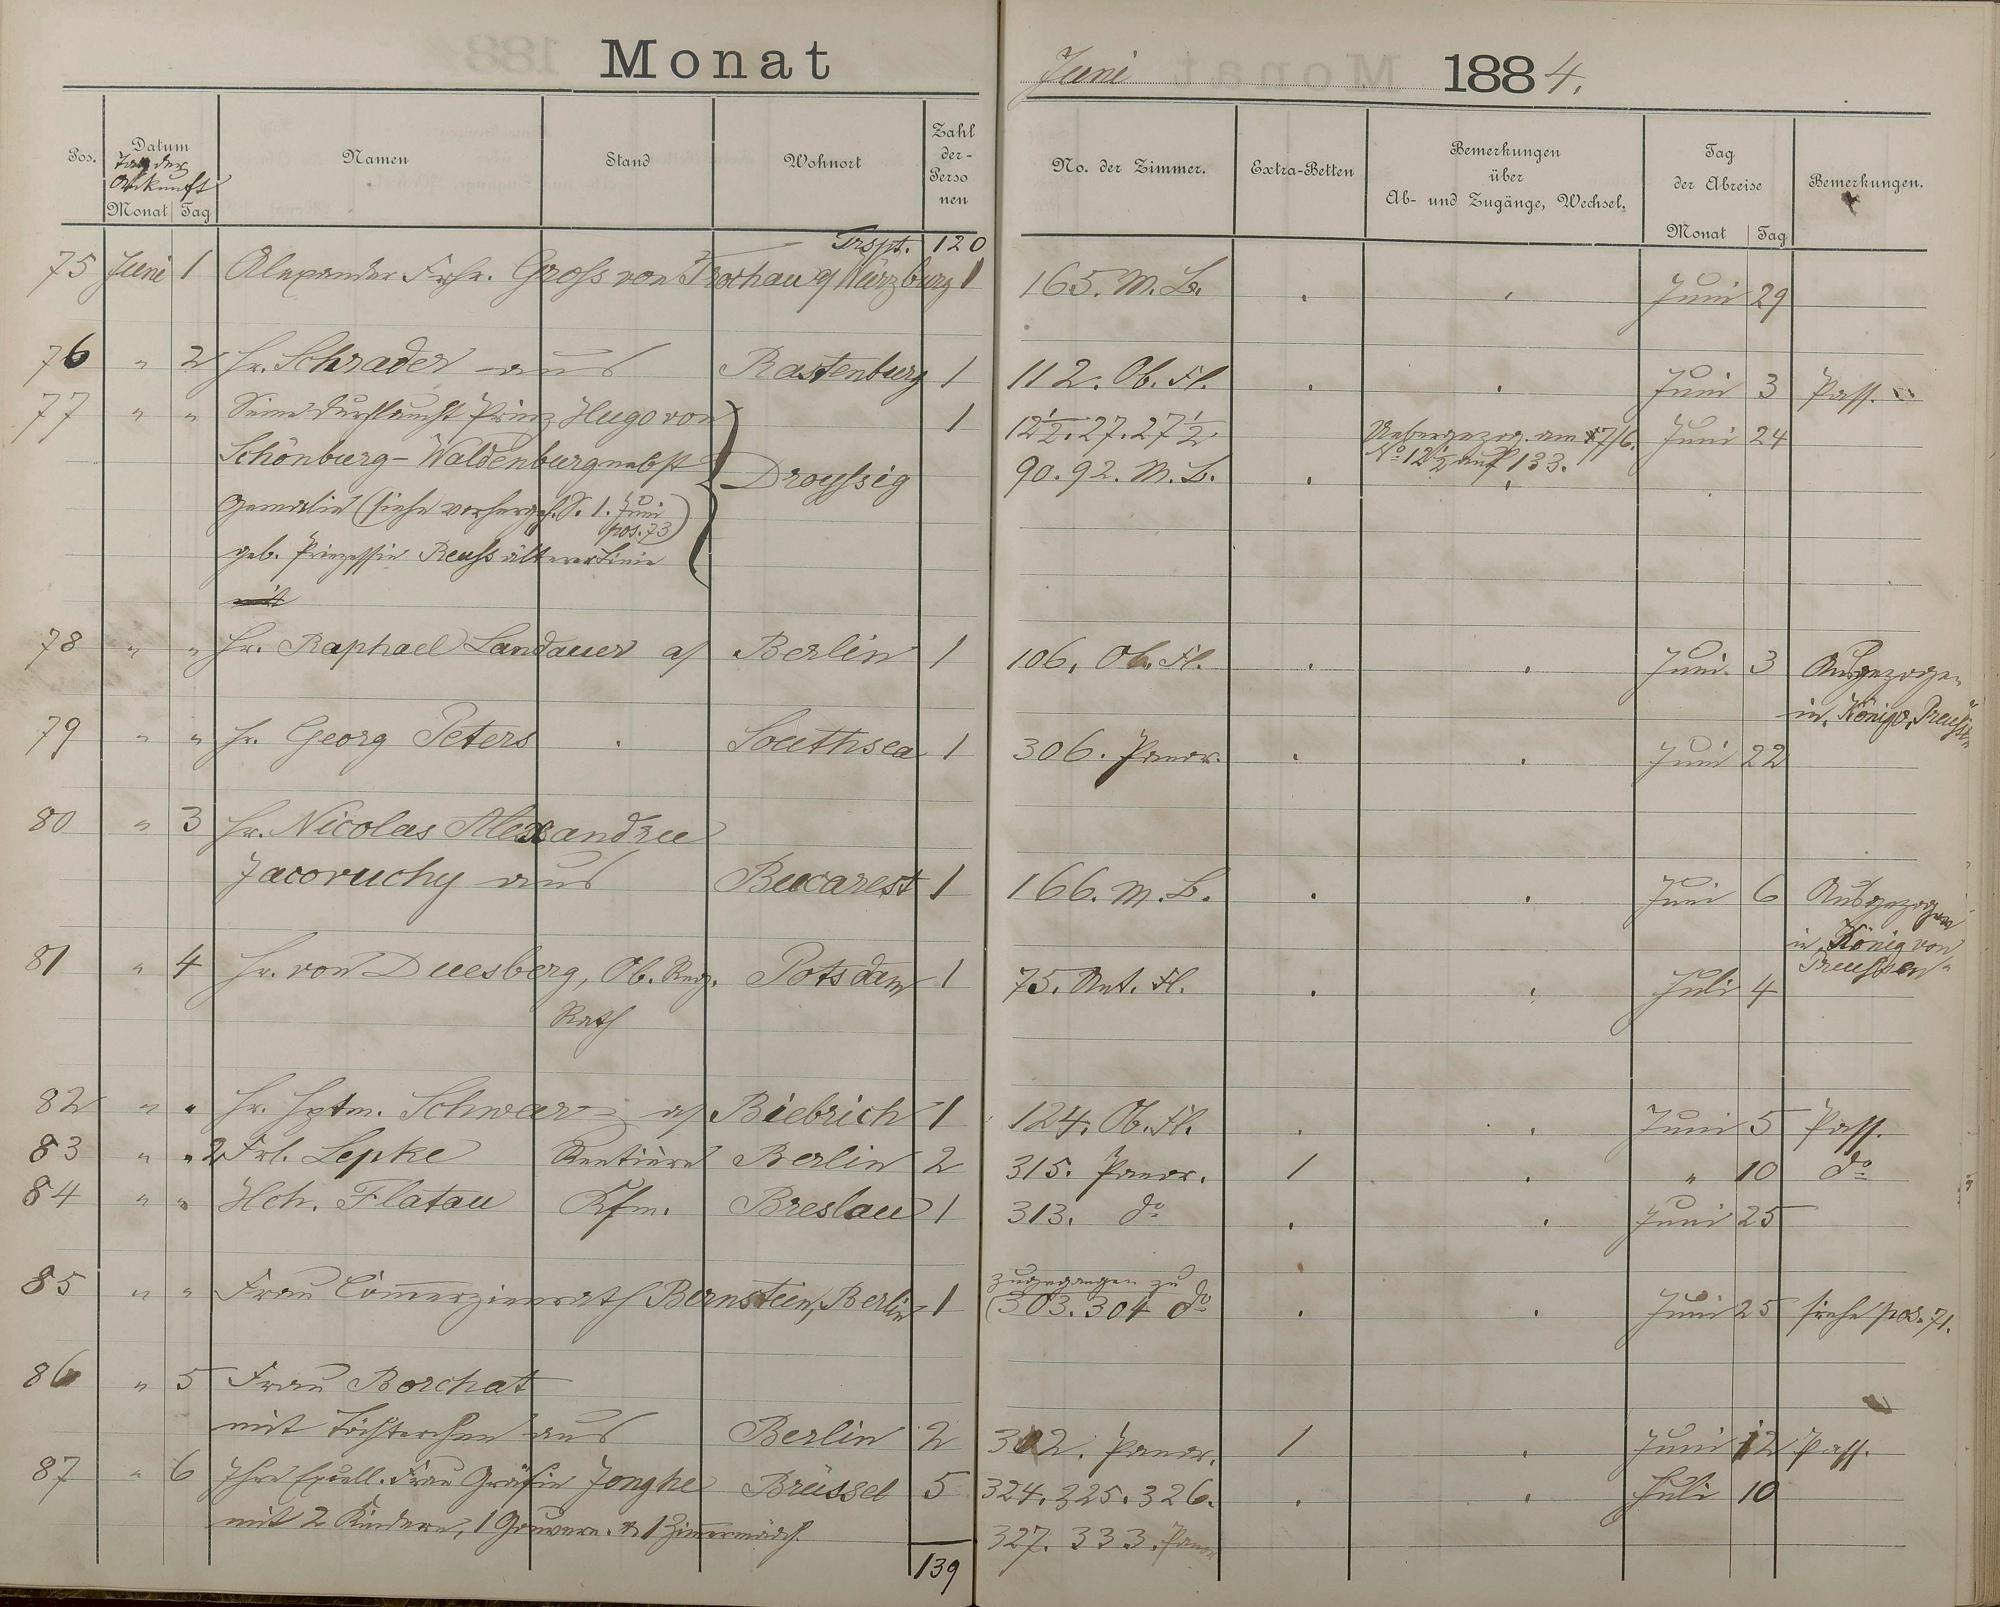 Monat Juni 1884.
Pos. Datum Tag der Ankunft Monat Tag Namen Stand Wohnort Zahl der Perso nen No. der Zimmer. Extra-Betten Bemerkungen über Ab- und Zugänge, Wechsel. Tag der Abreise Monat Tag Bemerkungen.
Trspt. 120
75 Juni 1 Alexander Frhr. Gross von Trochau a/ Würzburg 1 165. M. B. Juni 29
76 " 2 Hr. Schrader aus Rastenburg 1 112. Ob. Fl. Juni 3 Pass.
77 " " Seine Durchlaucht Prinz Hugo von 1 12½. 27. 27½ Uebergezog. am 17/6. Juni 24
Schönburg-Waldenburg nebst Droyssig 90. 92. M. B. No. 12½ auf 133.
Gemalin (siehe vorhergeh. S. 1. Juni
pos. 73)
geb. Prinzessin Reuss älterer Linie
mit
78 " " Hr. Raphael Landauer a/ Berlin 1 106. Ob. Fl. Juni 3 Ausgezogen
in "König v. Preussen"
79 " " Hr. Georg Peters Southsea 1 306. Panor. Juni 22
80 " 3 Hr. Nicolas Alexandru
Jacoruchy aus Bucarest 1 166. M. B. Juni 6 Ausgezogen
in "König von
Preussen"
81 " 4 Hr. von Duesberg, Ob. Reg. Potsdam 1 75. Unt. Fl. Juli 4
Rath
82 " " Hr. Hptm. Schwarz a/ Biebrich 1 124. Ob. Fl. Juni 5 Pass.
83 " " 2 Frl. Lepke Rentière Berlin 2 315. Panor. 1 " 10 do
84 " " Hch. Flatau Kfm. Breslau 1 313. do Juni 25
85 " " Frau Commerzienrath Bernstein, Berlin 1 zugegangen zu
(303. 304 do Juni 25 siehe pos. 71.
86 " 5 Frau Borchat
mit Töchterchen aus Berlin 2 302. Panor. 1 Juni 12 Pass.
87 " 6 Ihre Excell. Frau Gräfin Jonghe Brüssel 5 324. 325. 326. Juli 10
mit 2 Kindern, 1 Gouvern. & 1 Zimmermädch. 327. 333. Panor
139